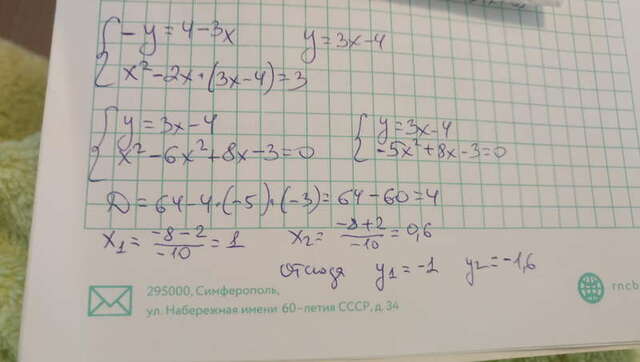 { -y = 4-3x    y = 3x-4
{ x²-2x·(3x-4)=3
{ y = 3x-4    { y=3x-4
{ x²-6x²+8x-3=0    { -5x²+8x-3=0
D = 64-4·(-5)·(-3)=64-60=4
x₁ = (-8-2)/(-10) = 1    x₂ = (-8+2)/(-10) = 0,6
отсюда y₁=-1    y₂=-1,6
295000, Симферополь,
ул. Набережная имени 60-летия СССР, д. 34
rncb